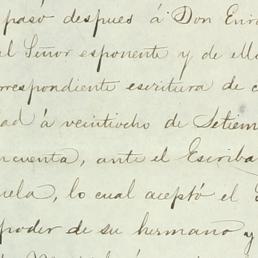 pasó despues á Don Enr
el Señor esponente y de ello
rrespondiente escritura de c
dad á veintiocho de Setiem
ncuenta, ante el Escriba
uela, lo cual aceptó el
poder de su hermano y